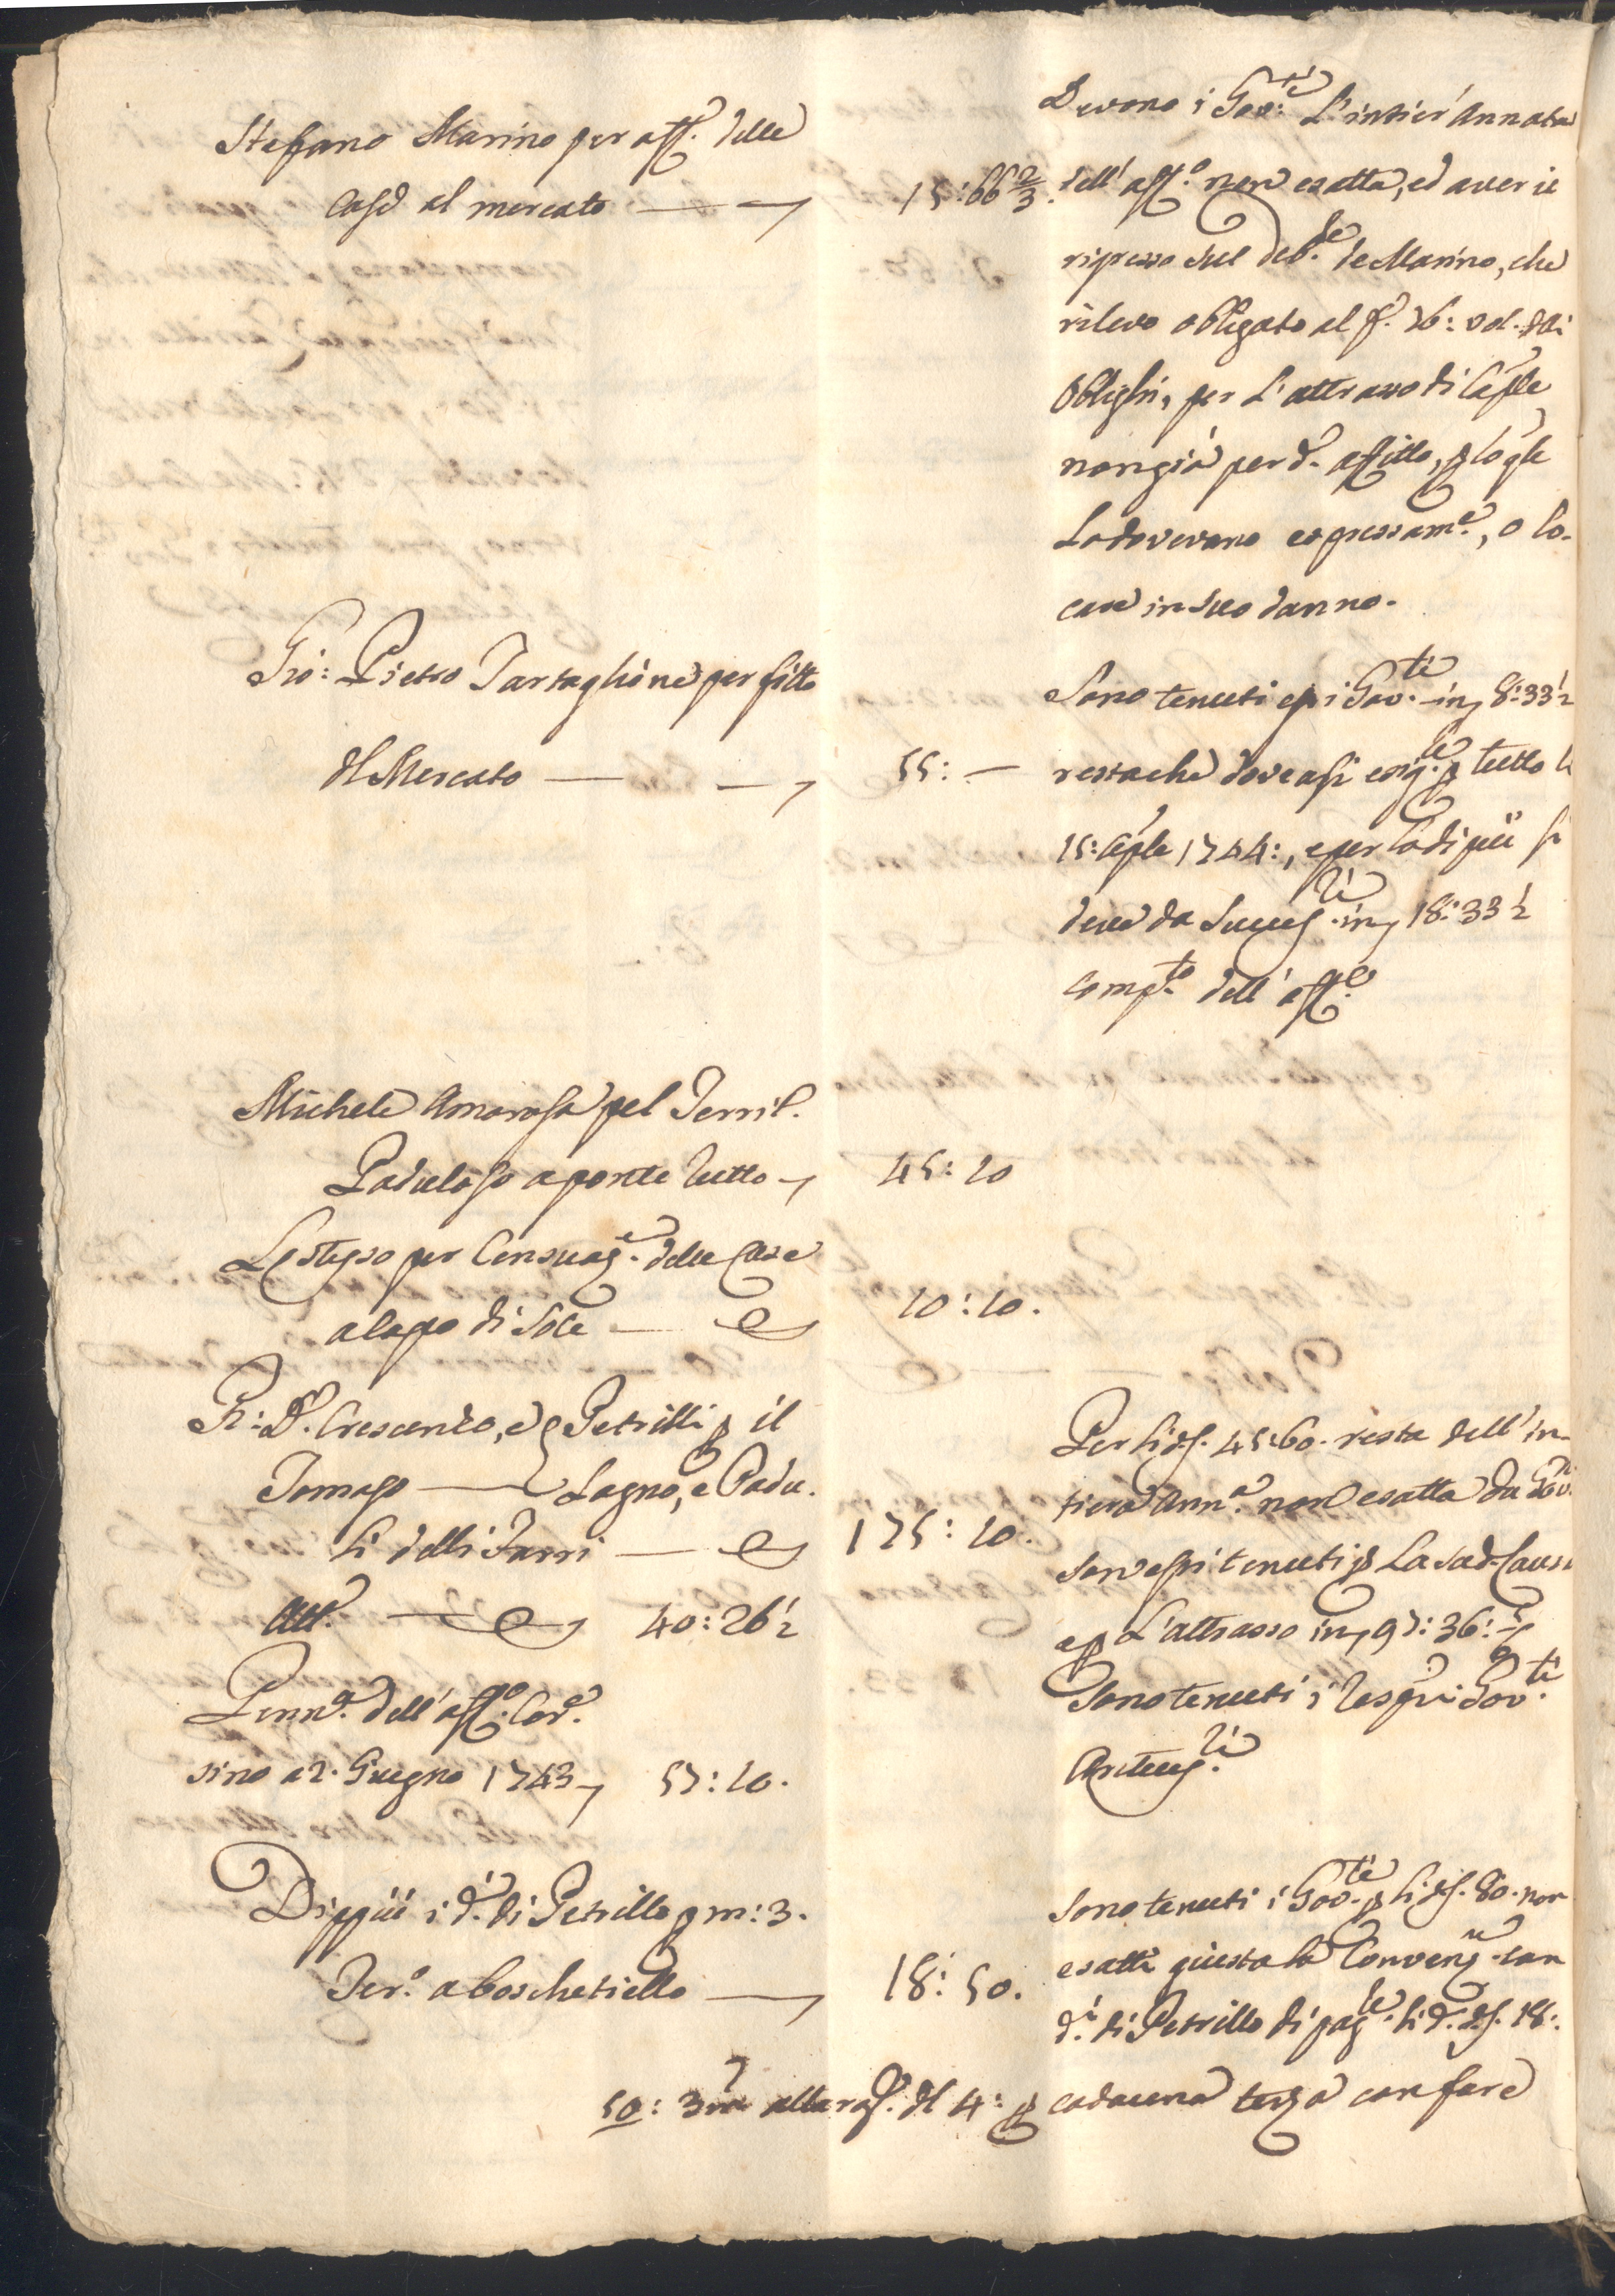 Stefano Marino per aff.º delle
Case al mercato — 15:66 2/3.
Devono i Gov.ti L'intier' Annata
dell' aff.º non esatta, ed aver ie
ripreso sul deb.re de Marino, che
rilevo obligato al f. 36: vol. dei
Oblighi, per L'attrasso di
non già per d.º affitto, p lo qle
Lo dovevano espressam.e, o lo-
care in suo danno.
Gio: Pietro Tartaglione per fitto
del Mercato — 55: —
Sono tenuti i Gov.ti in 8:33 1/2
resta che doveasi esig.re p tutto li
15: 1744:, e per lo di più si
deve da Success.ri in 18:33 1/2
comp.to dell' aff.º
Michele Amorosa pel Territ.
Paduloso a ponte tutto — 45:10
Lo stesso per Censuaz.e delle Case
a capo di Sole — 10:10.
R: D. Crescenzo, e Petrilli p il
Tomaso — Lagno, e Padu-
li delli Farri — 175:10.
Att.º — 40:26 1/2
Per li d. 45:60. resta dell' in-
tiera Ann.a non esatta da Gov.ri
sono essi tenuti p La sud.a Causa
e p L'attrasso in 97:36:
Sono tenuti i Gov.ti
Antecess.ri
Penn.a dell' aff.º
sino a 2. Giugno 1743 57:10.
Dippiù i d.i di Petrillo p m: 3.
Ter.º a boschetiello — 18:50.
Sono tenuti i Gov.ti p li d. 80. non
esatti giusta la Convenz.ne con
d.i di Petrillo di pag.re li d.i d. 18:
50: 3 alla rag.e del 4: p cadauna terza con fare